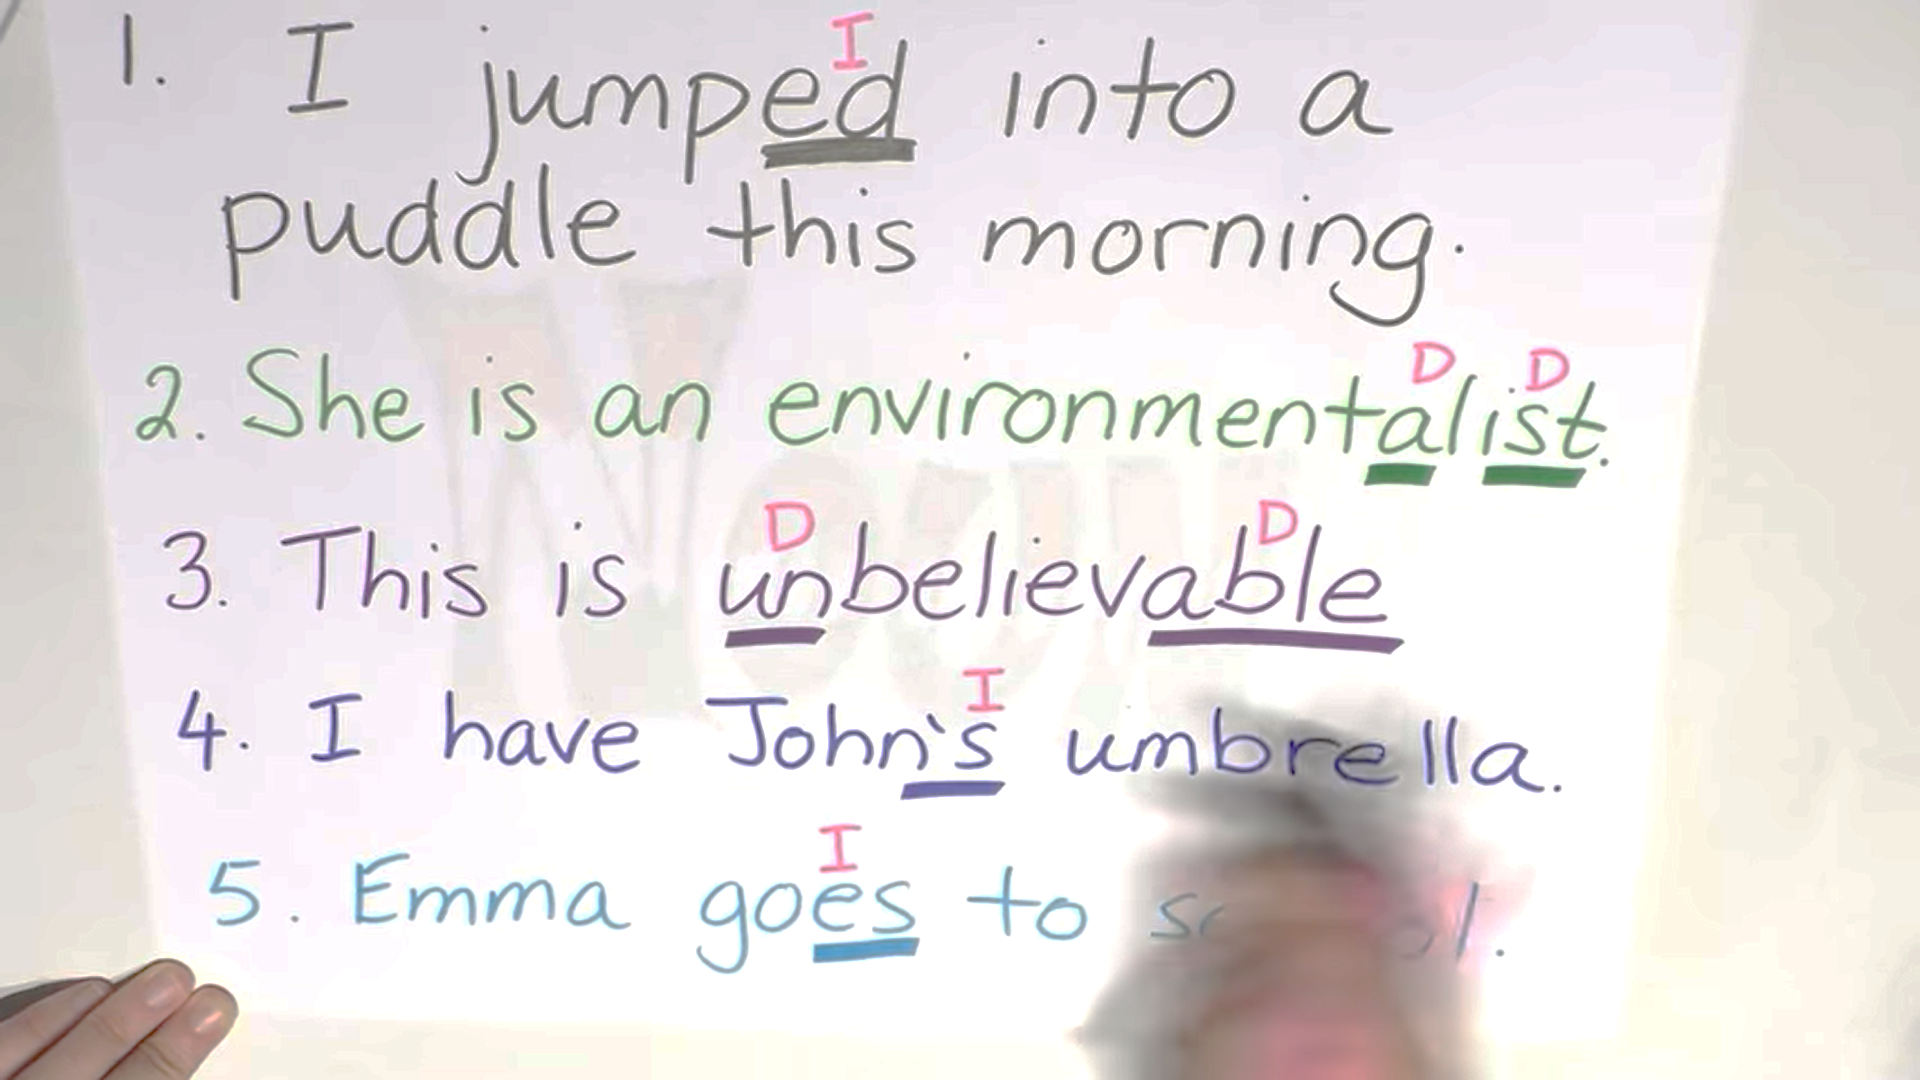 I
1. I jumped into a
puddle this morning.
D D
2. She is an environmentalist.
D D
3. This is unbelievable
I
4. I have John's umbrella.
I
5. Emma goes to